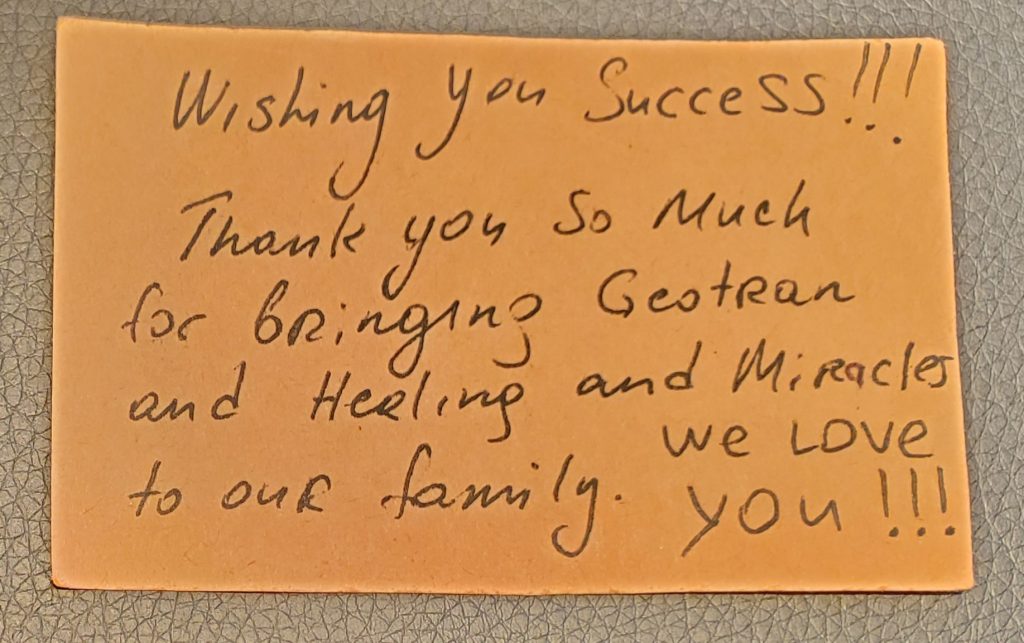 Wishing you Success!!!
Thank you So Much
for bringing Geotran
and Healing and Miracles
to our family.
We LOVE
you!!!